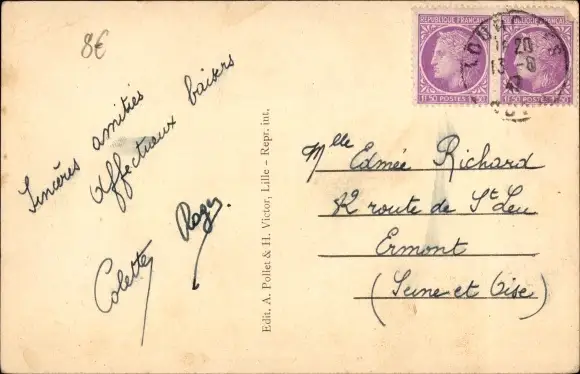 8€
Sincères amitiés
affectueux baisers
Colette Roger.
Edit. A. Pollet & H. Victor, Lille - Repr. int.
REPUBLIQUE FRANÇAISE REPUBLIQUE FRANÇAISE
1F50 POSTES 1F50 POSTES
20
13 - 8
47
Mlle Edmée Richard
route de St Leu
Ermont
(Seine et Oise)